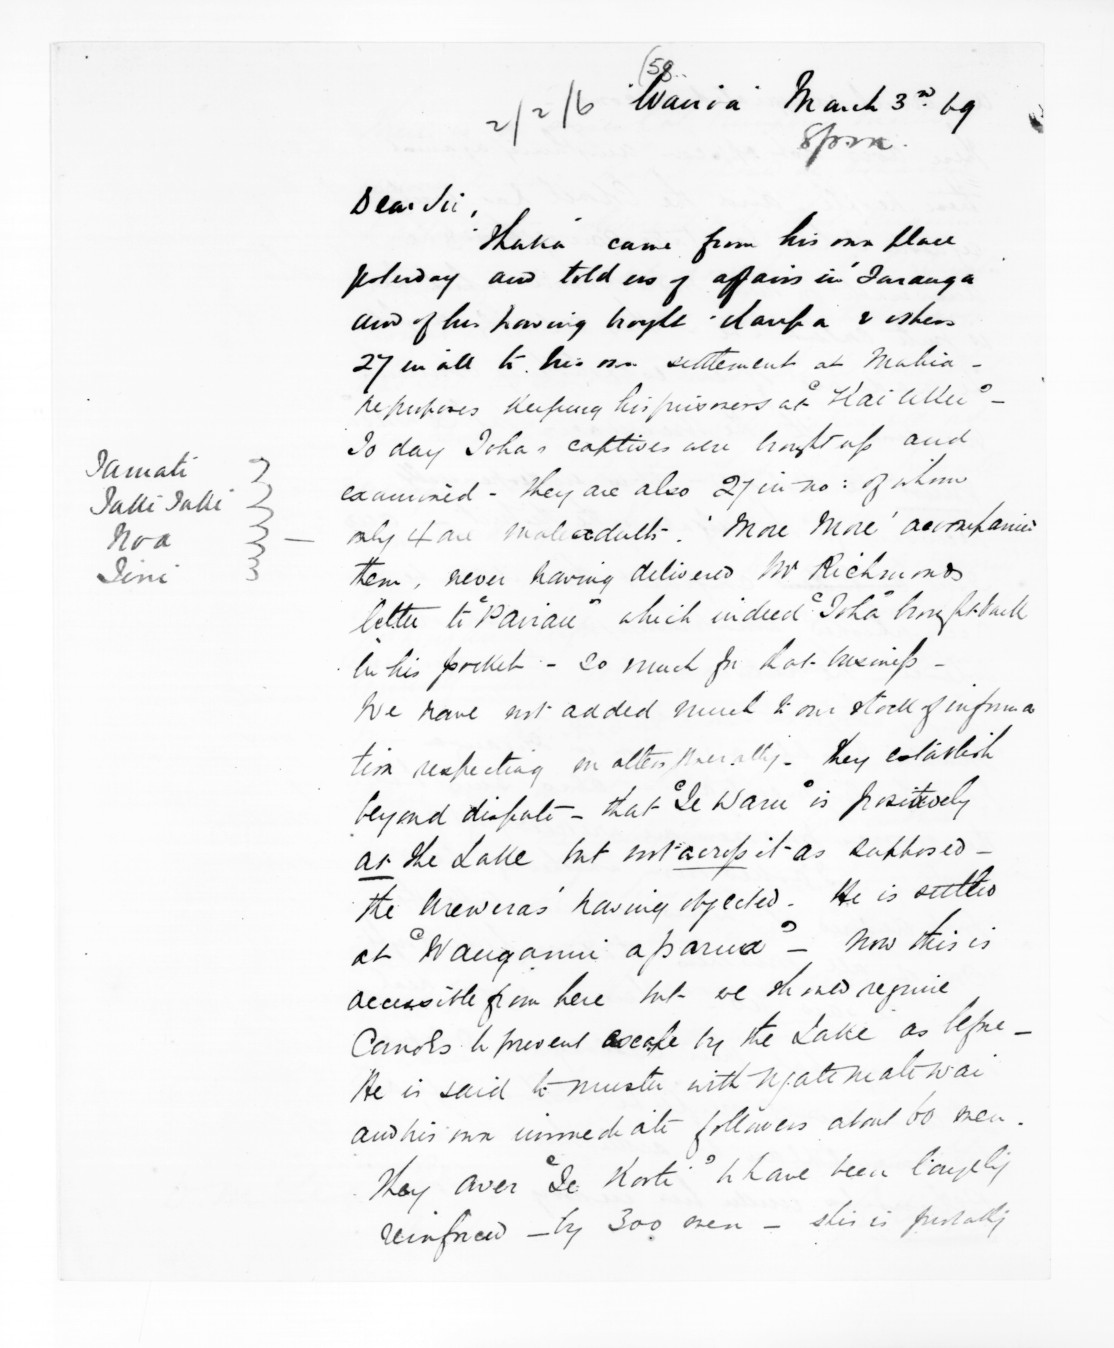 (58
2/2/6 'Wairoa' March 3rd. 69
8pm.
Dear Sir,
'Ihaka' came from his own place
yesterday and told us of affairs in Turanga
and of his having brought & others
27 in all to his own settlement at Mahia -
he purposes keeping his prisoners at "Kai Uku" -
To day Toha's captives were brought up and
examined - they are also 27 in no: of whom
only 4 are male adults. 'More More' accompanied
Tamati
Taki Taki
Noa
Timi
them, never having delivered Mr Richmonds
letter to "Pairau" which indeed "Toha" brought back
in his pocket - so much for that business -
We have not added much to our stock of informa
tion respecting matters generally - they establish
beyond dispute - that "Te Waru" is positively
at the Lake but not across it as supposed -
the Urewera's having objected. He is settled
at "Wauganui aparua" - Now this is
accessible from here but we should require
Canoes to prevent escape by the Lake as before -
He is said to muster with Ngatimatewai
and his own immediate followers about 60 men.
They aver "Te Kooti" to have been largely
reinforced - by 300 men - this is probably